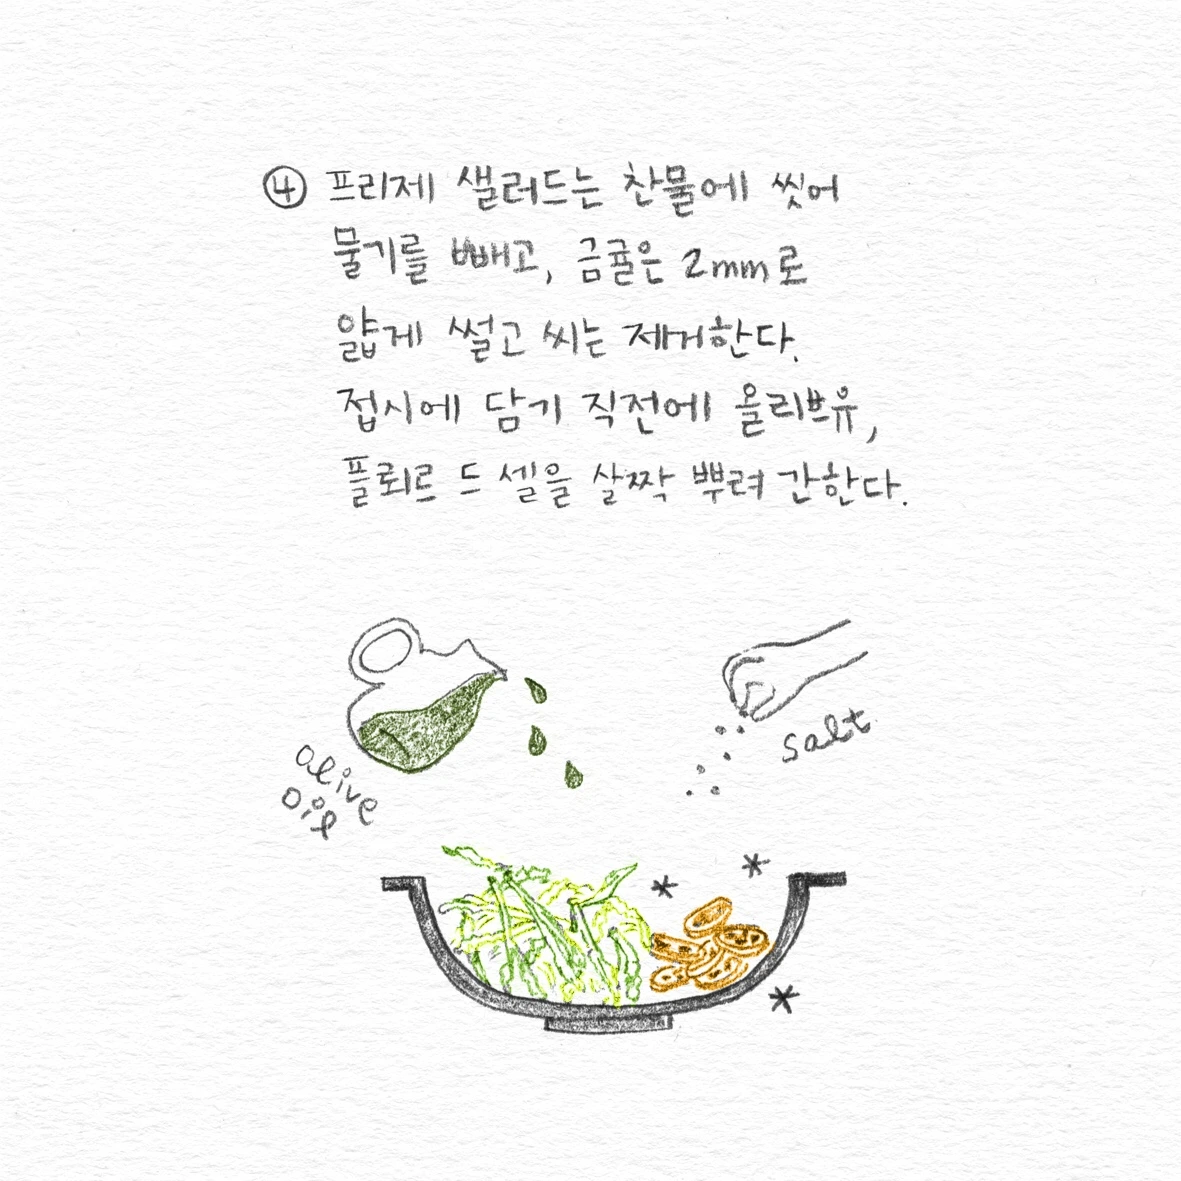 ④ 프리제 샐러드는 찬물에 씻어
물기를 빼고, 금귤은 2mm로
얇게 썰고 씨는 제거한다.
접시에 담기 직전에 올리브유,
플뢰르 드 셀을 살짝 뿌려 간한다.
olive
oil
salt